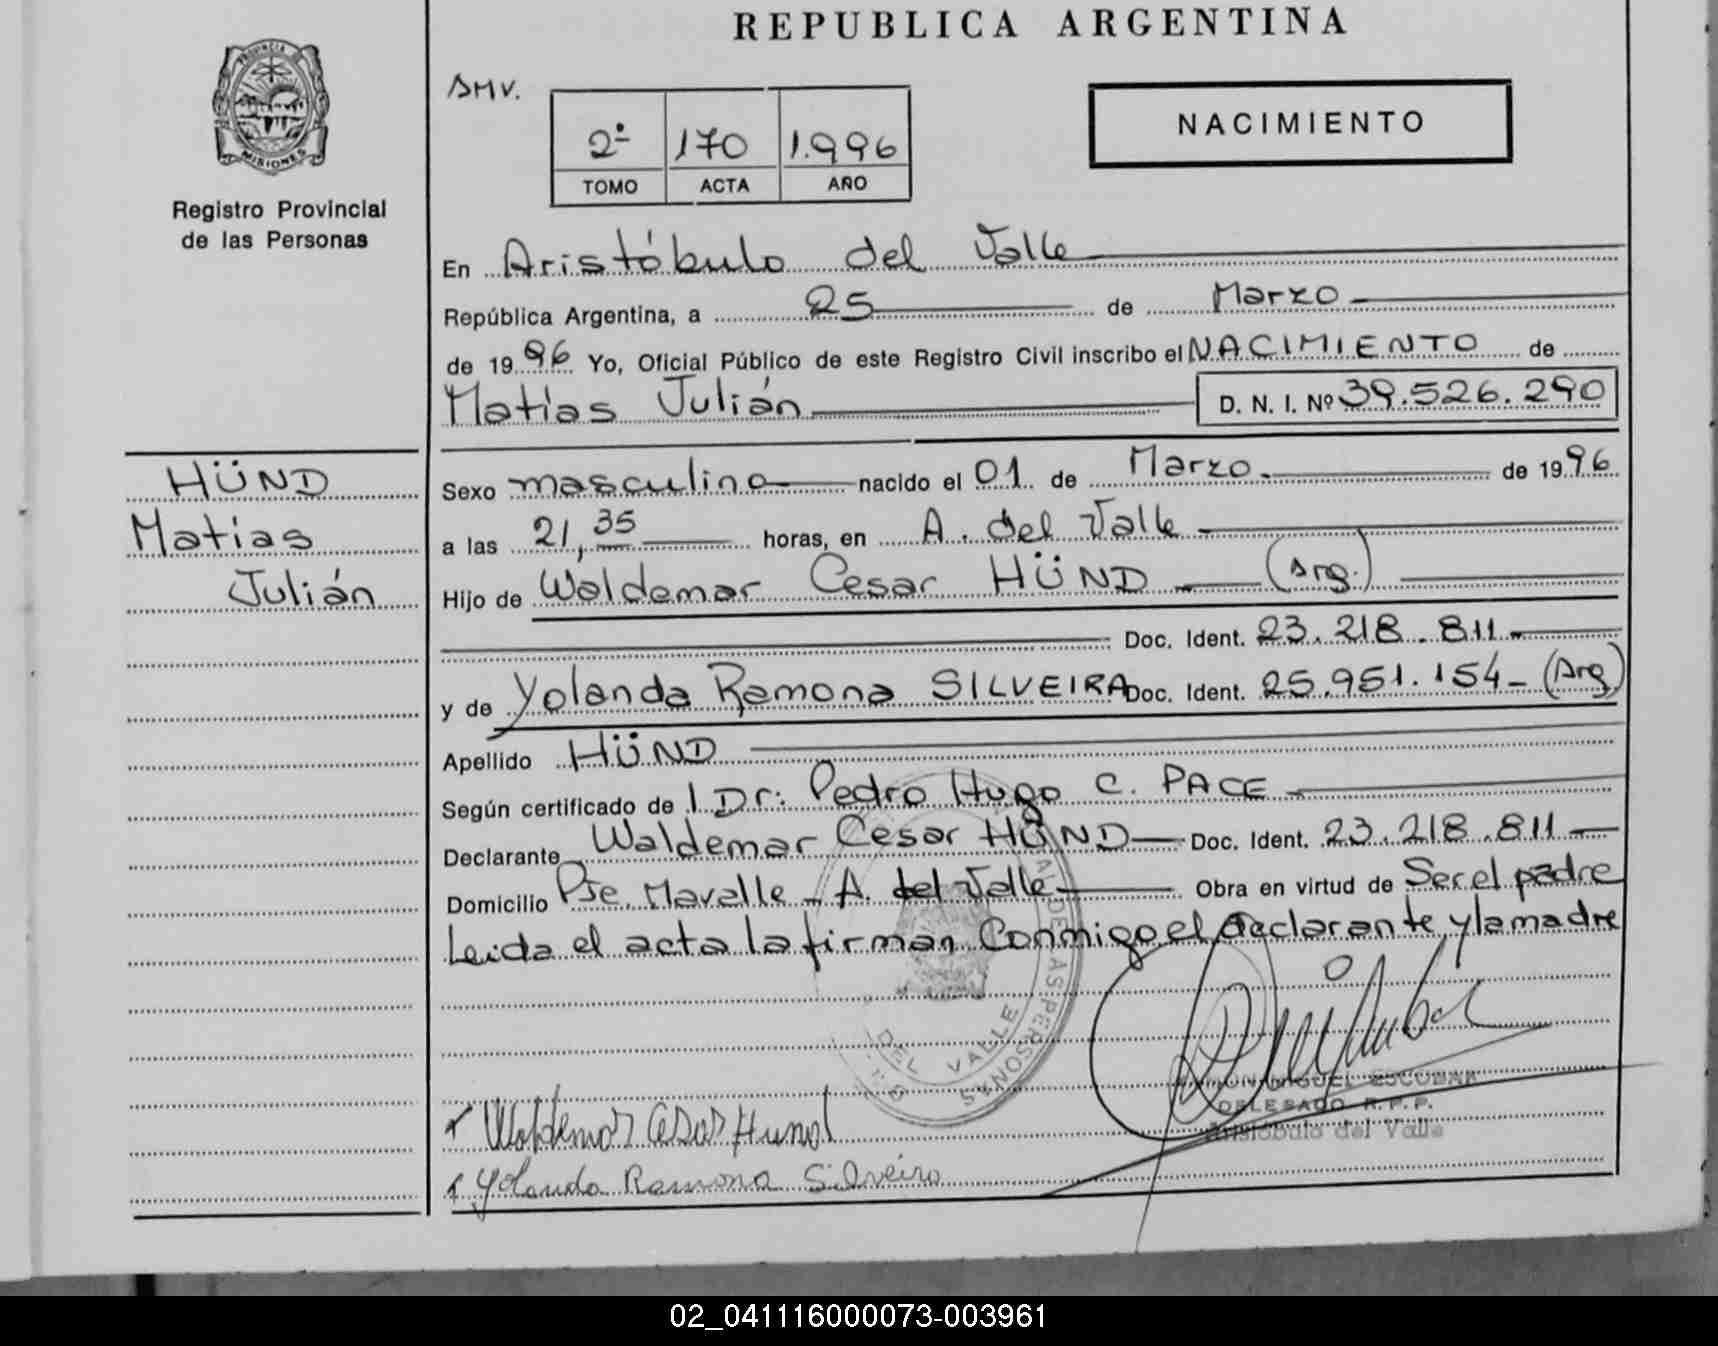 REPUBLICA ARGENTINA
PROVINCIA
MISIONES
Registro Provincial
de las Personas
SMV.
2º 170 1.996
TOMO ACTA AÑO
NACIMIENTO
En Aristóbulo del Valle
República Argentina, a 25 de Marzo
de 1996 Yo, Oficial Público de este Registro Civil inscribo el NACIMIENTO de
Matías Julián D. N. I. Nº 39.526.290
HÜND
Matías
Julián
Sexo masculino nacido el 01 de Marzo de 1996
a las 21,35 horas, en A. del Valle
Hijo de Waldemar Cesar HÜND (Arg.)
Doc. Ident. 23.218.811
y de Yolanda Ramona SILVEIRA Doc. Ident. 25.951.154 (Arg)
Apellido HÜND
Según certificado de l Dr: Pedro Hugo C. PACE
Declarante Waldemar Cesar HÜND Doc. Ident. 23.218.811
Domicilio Pje. Mavalle - A. del Valle Obra en virtud de Ser el padre
Leida el acta la firman Conmigo el declarante y la madre
DE LAS PERSONAS
DEL VALLE
MIGUEL ESCOBAR
DELEGADO R.P.P.
Aristóbulo del Valle
Waldemar Cesar Hund
Yolanda Ramona Silveira
02_041116000073-003961